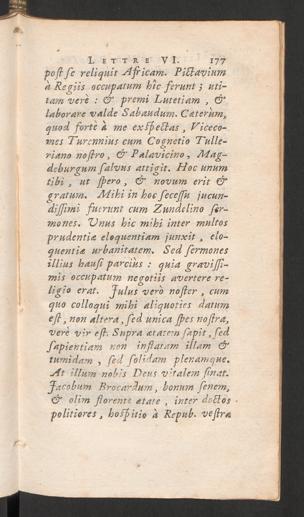 LETTRE VI. 177
post se reliquit Africam. Pictavium
à Regiis occupatum hîc ferunt ; uti-
tam verè : & premi Lutetiam , &
laborare valde Sabaudum. Cæterùm,
quod fortè à me exspectas , Viceco-
mes Turennius cum Cognetio Tulle-
riano nostro, & Palavicino, Mag-
deburgum salvus attigit. Hoc unum
tibi , ut spero, & novum erit &
gratum. Mihi in hoc secessu jucun-
dissimi fuerunt cum Zundelino ser-
mones. Unus hic mihi inter multos
prudentiæ eloquentiam junxit , elo-
quentiæ urbanitatem. Sed sermones
illius hausi parciùs : quia gravissi-
mis occupatum negotiis avertere re-
ligio erat. Julus verò noster , cum
quo colloqui mihi aliquoties datum
est , non altera , sed unica spes nostra,
verè vir est. Supra ætatem sapit , sed
sapientiam non inflatam illam &
tumidam , sed solidam plenamque.
At illum nobis Deus vitalem sinat.
Jacobum Brocardum, bonum senem,
& olim florente ætate , inter doctos
politiores , hospitio à Repub. vestra